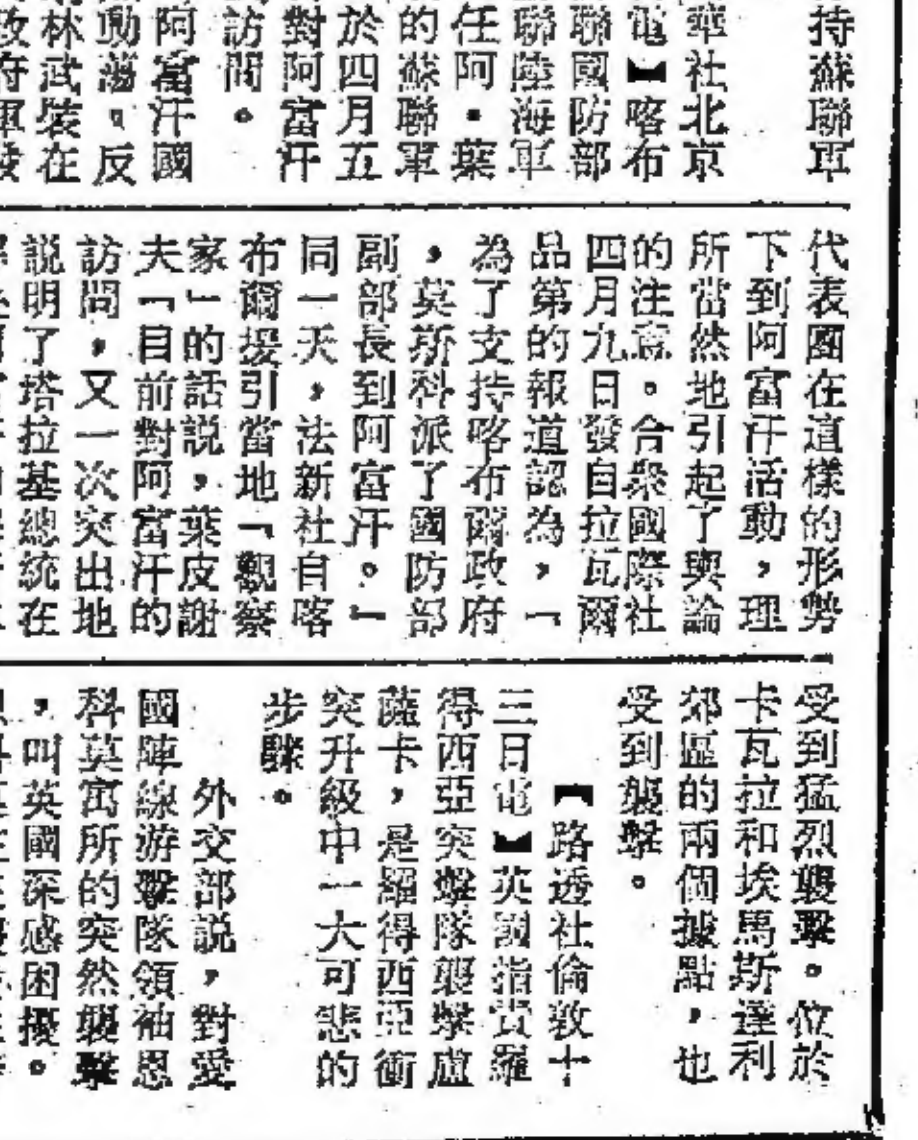 持蘇聯軍
華社北京
電】喀布
聯國防部
聯陸海軍
任阿·葉
的蘇聯軍
於四月五
對阿富汗
訪問。
阿富汗國
動蕩。反
林武裝在
代表團在這樣的形勢
下到阿富汗活動，理
所當然地引起了輿論
的注意。合衆國際社
四月九日發自拉瓦爾
品第的報道認為，「
為了支持喀布爾政府
，莫斯科派了國防部
副部長到阿富汗。」
同一天，法新社自喀
布爾援引當地「觀察
家」的話説，葉皮謝
夫「目前對阿富汗的
訪問，又一次突出地
説明了塔拉基總統在
受到猛烈襲擊。位於
卡瓦拉和埃馬斯達利
郊區的兩個據點，也
受到襲擊。
【路透社倫敦十
三日電】英國指責羅
得西亞突擊隊襲擊盧
薩卡，是羅得西亞衝
突升級中一大可悲的
步驟。
外交部説，對愛
國陣線游擊隊領袖恩
科莫寓所的突然襲擊
，叫英國深感困擾。